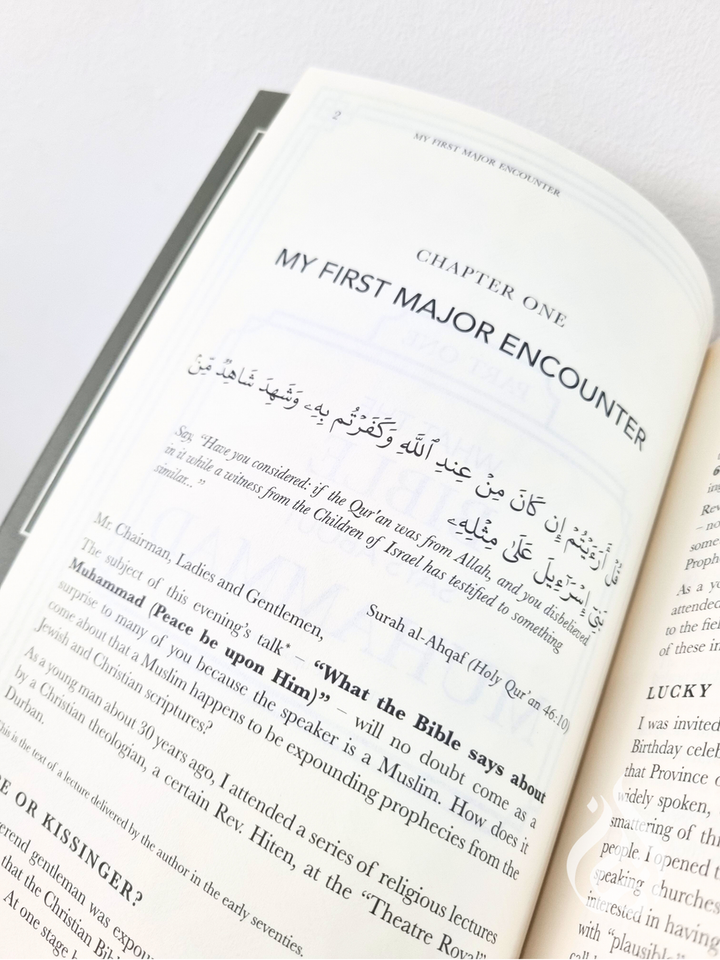 2
MY FIRST MAJOR ENCOUNTER
CHAPTER ONE
MY FIRST MAJOR ENCOUNTER
قُلْ أَرَءَيْتُمْ إِن كَانَ مِنْ عِندِ ٱللَّهِ وَكَفَرْتُم بِهِۦ وَشَهِدَ شَاهِدٌ مِّنۢ
بَنِىٓ إِسْرَٰٓءِيلَ عَلَىٰ مِثْلِهِۦ
Say, "Have you considered: if the Qur'an was from Allah, and you disbelieved
in it while a witness from the Children of Israel has testified to something
similar..."
Surah al-Ahqaf (Holy Qur'an 46:10)
Mr. Chairman, Ladies and Gentlemen,
The subject of this evening's talk* – "What the Bible says about
Muhammad (Peace be upon Him)" – will no doubt come as a
surprise to many of you because the speaker is a Muslim. How does it
come about that a Muslim happens to be expounding prophecies from the
Jewish and Christian scriptures?
As a young man about 30 years ago, I attended a series of religious lectures
by a Christian theologian, a certain Rev. Hiten, at the "Theatre Royal"
Durban.
This is the text of a lecture delivered by the author in the early seventies.
OR KISSINGER?
gentleman was
that the Christian
At one stage
As a
attended
to the
of these
LUCKY
I was invited
Birthday
that Province
widely spoken,
smattering of
people. I opened
speaking churches
interested in having
with "plausible"